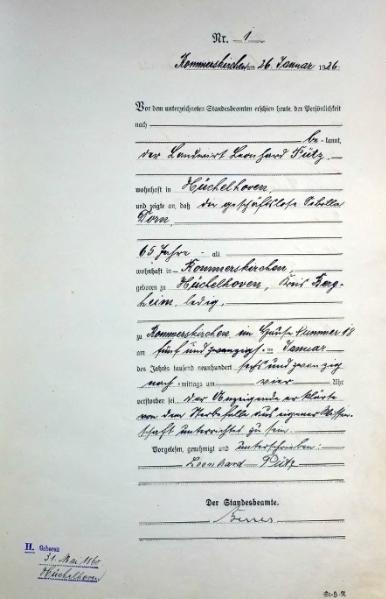 Nr. 1
Rommerskirchen am 26. Januar 1926.
Vor dem unterzeichneten Standesbeamten erschien heute, der Persönlichkeit
nach
be- kannt,
der Landwirt Leonhard Pütz
wohnhaft in Hüchelhoven,
und zeigte an, daß die geschäftslose Sibilla
Dorn,
65 Jahre alt
wohnhaft in Rommerskirchen,
geboren zu Hüchelhoven, Kreis Berg-
heim, ledig,
zu Rommerskirchen im Hause Nummer 18
am fünf und zwanzigsten Januar
des Jahres tausend neunhundert sechs und zwanzig
nach mittags um vier Uhr
verstorben sei. Der Anzeigende erklärte
von dem Sterbefalle aus eigener Wissen-
schaft unterrichtet zu sein.
Vorgelesen, genehmigt und unterschrieben:
Leonhard Pütz
Der Standesbeamte.
H. Geboren
31. Mai
Hüchelhoven